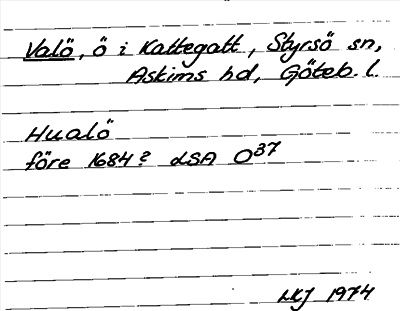 Valö, ö i Kattegatt, Styrsö sn,
Askims hd, Göteb. l.
Hualö
före 1684? LSA O37
LKJ 1974